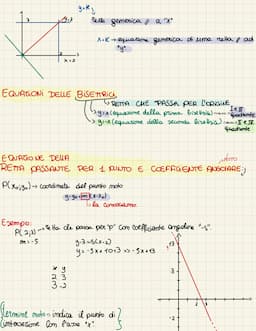 y=k
Retta generica // a "x"
x=k → equazione generica di una retta // ad "y"
x=2
EQUAZIONI DELLE BISETTRICI
RETTA CHE PASSA PER L'ORIGINE
y=x (equazione della prima bisettrice) → I e III quadrante
y=-x (equazione della seconda bisettrice) → II e IV quadrante
EQUAZIONE DELLA
RETTA PASSANTE PER 1 PUNTO E COEFFICIENTE ANGOLARE
P(x₀;y₀) → coordinate del punto noto
y-y₀=m(x-x₀)
lo conosciamo
Esempio:
P(2;3) → retta che passa per "P" con coefficiente angolare "-5"
m=-5
y-3=-5(x-2)
y=-5x+10+3 → -5x+13
x y
2 3
3 -2
Termine noto → indica il punto di
intersezione con l'asse "y"